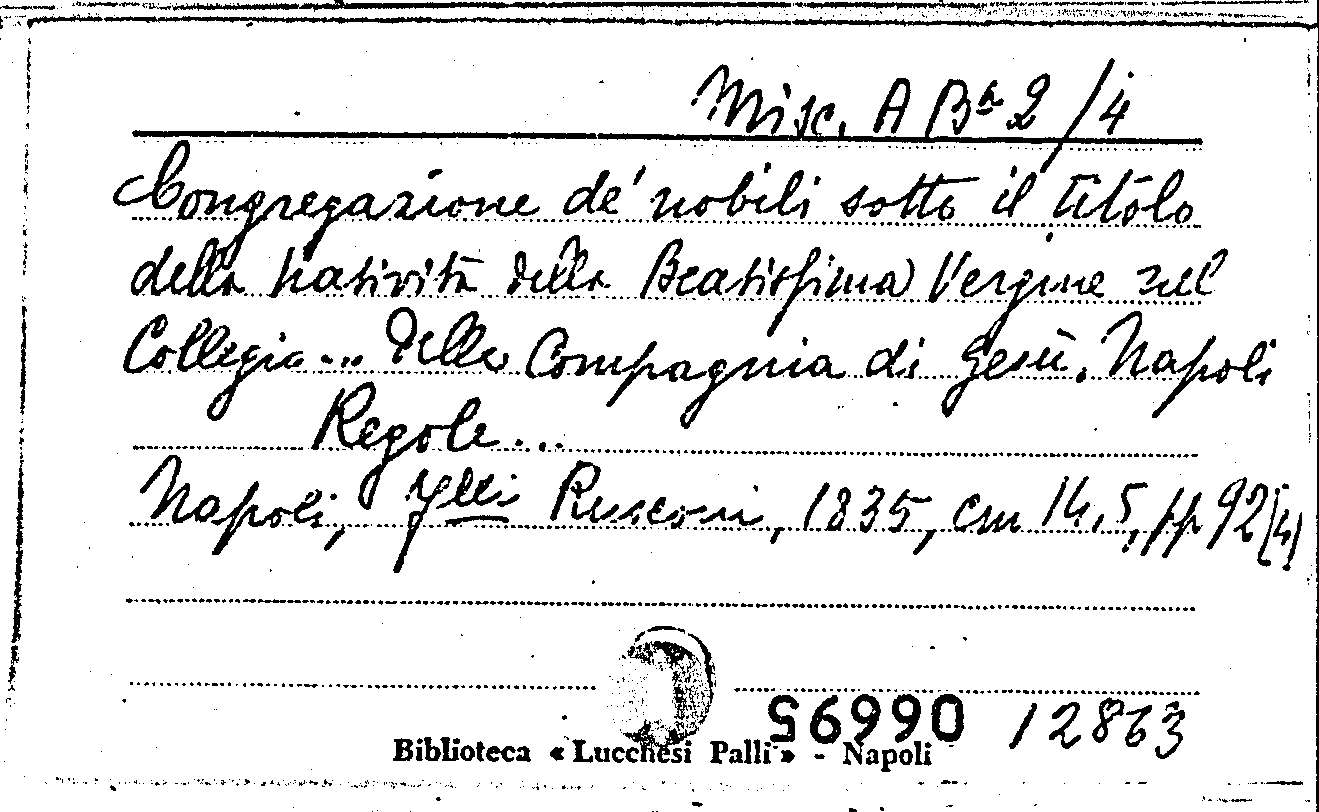 Misc. A Bª 2/4
Congregazione de' nobili sotto il titolo
della natività della Beatissima Vergine nel
Collegio... della Compagnia di Gesù. Napoli
Regole...
Napoli, f.lli Rusconi, 1835, cm 14,5, pp 92[4]
56990 12863
Biblioteca « Lucchesi Palli » - Napoli